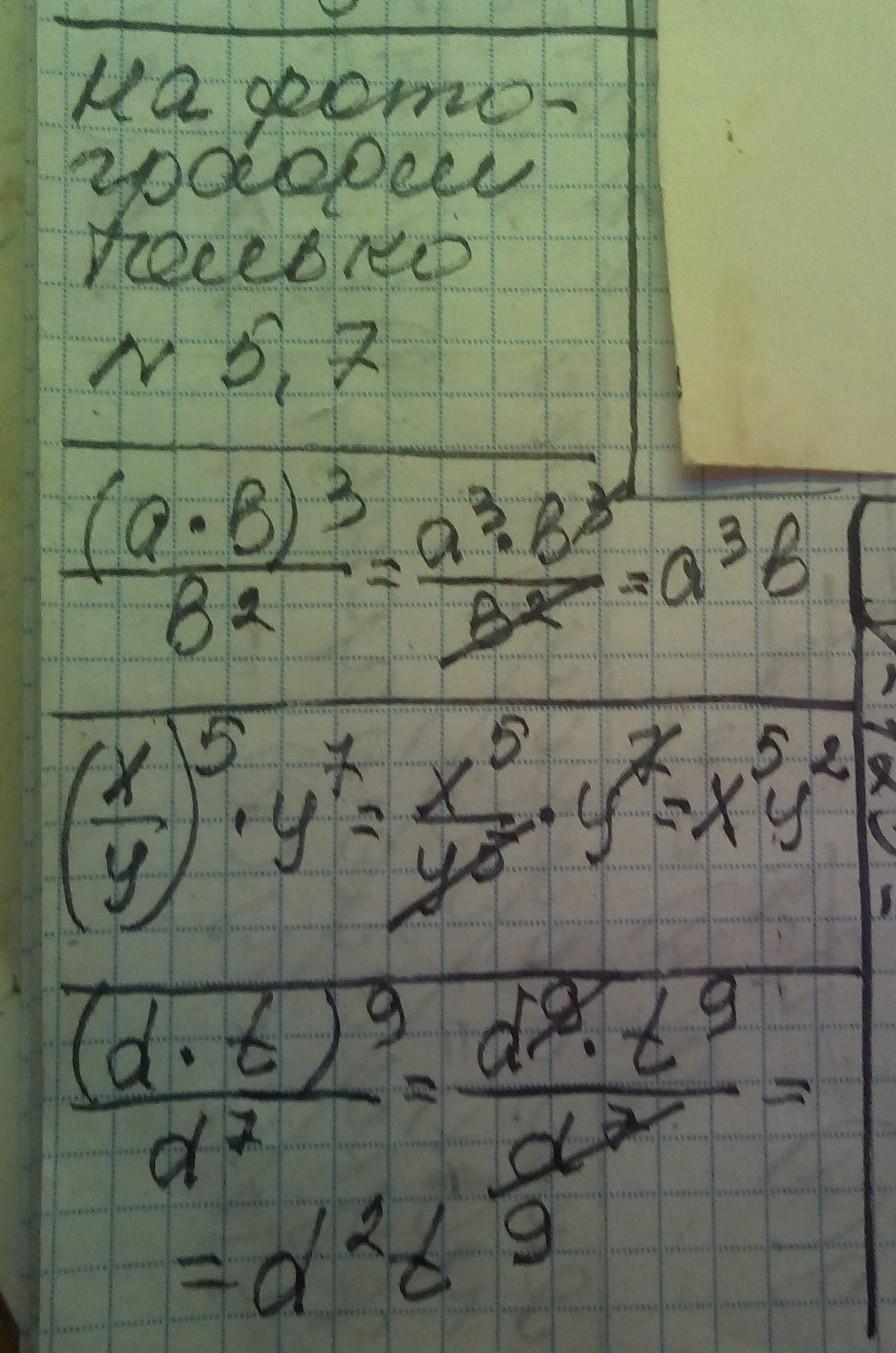 На фото-
графии
только
N 5, 7
(a · b)³ / b² = a³ · b³ / b² = a³ b
(x / y)⁵ · y⁷ = x⁵ / y⁵ · y⁷ = x⁵ y²
(d · t)⁹ / d⁷ = d⁹ · t⁹ / d⁷ =
= d² t⁹